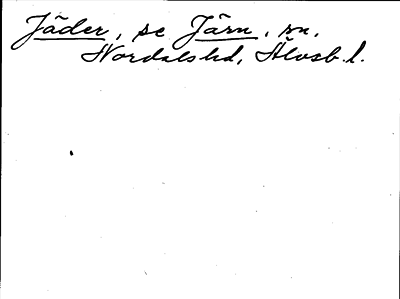 Jäder, se Järn, sn,
Nordalshd, Älvsb. l.